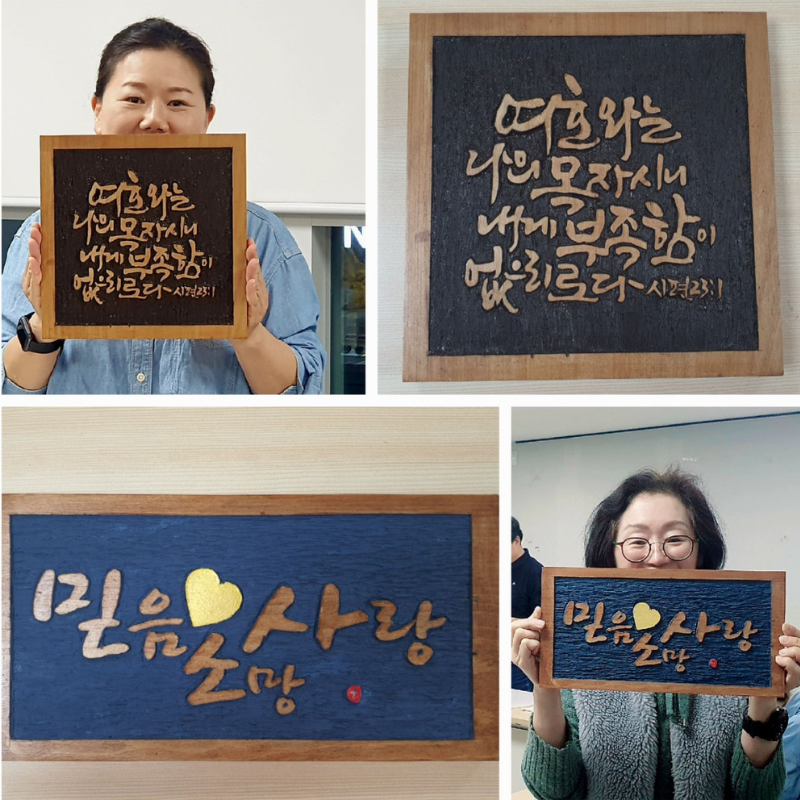 여호와는
나의 목자시니
내게 부족함이
없으리로다 시편23:1
여호와는
나의 목자시니
내게 부족함이
없으리로다 시편23:1
믿음 사랑
소망
믿음 사랑
소망